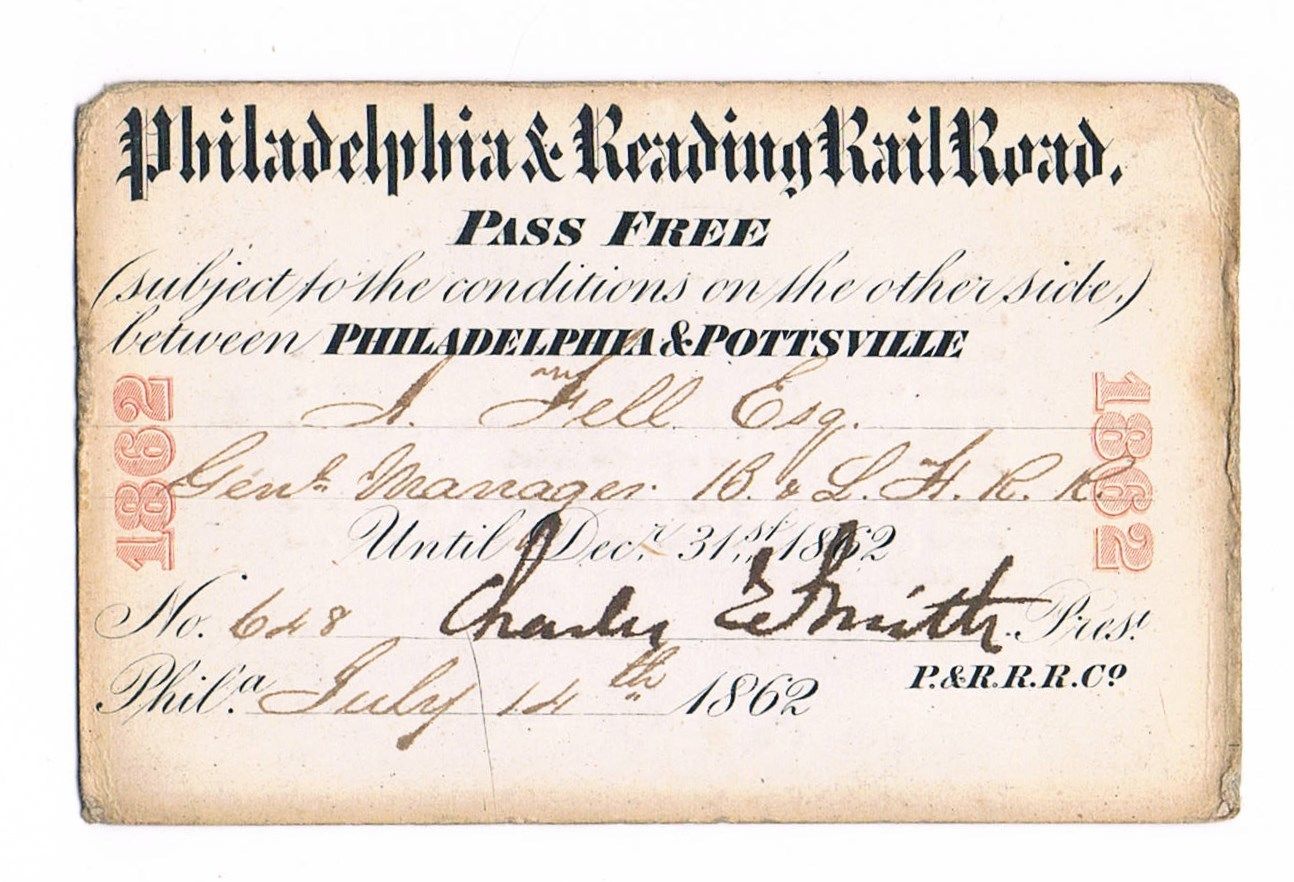 Philadelphia & Reading Rail Road.
PASS FREE
(subject to the conditions on the other side.)
between PHILADELPHIA & POTTSVILLE
J. Fell Esq.
Genl. Manager. B. & L. H. R. R.
Until Decr. 31st. 1862
No. 648 Charles E Smith Prest.
Phila. July 14th 1862 P. & R. R. R. Co.
1862
1862